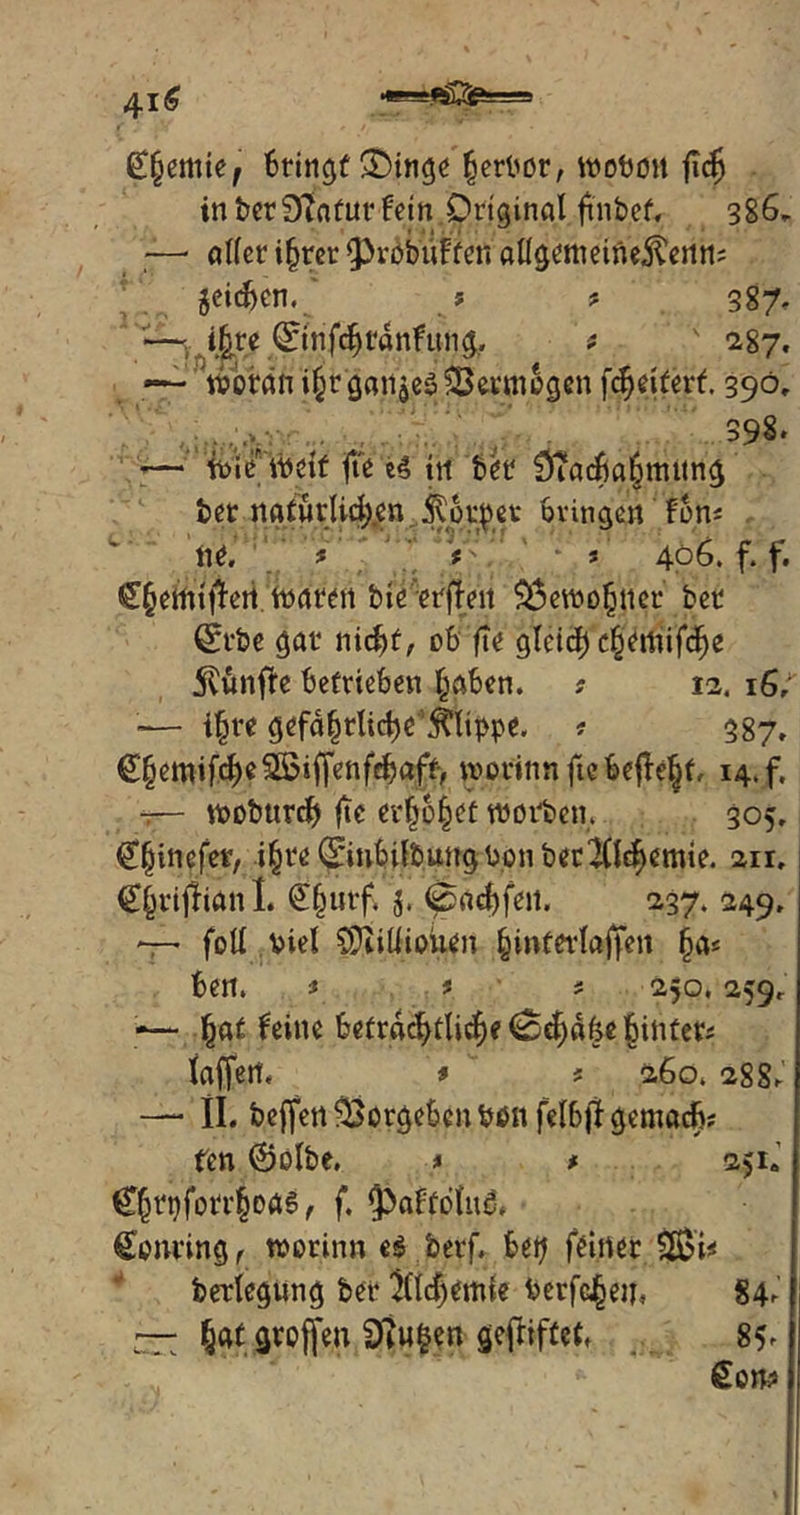 416
Chemie, bringt Dinge hervor, wovon sich
in der Natur kein Original findet. 386.
— aller ihrer Produkten allgemeine Kenn-
zeichen. = = 387.
— ihre Einschränkung. = 287.
— woran ihr ganzes Vermögen scheitert. 390.
398.
— wie weit sie es in der Nachahmung
der natürlichen Körper bringen kön-
ne. = = = 406. f. f.
Chemisten waren die ersten Bewohner der
Erde gar nicht, ob sie gleich chemische
Künste betrieben haben. = 12. 16.
— ihre gefährliche Klippe. = 387.
Chemische Wissenschaft, worinn sie besteht. 14. f.
— wodurch sie erhöhet worden. 305.
Chineser, ihre Einbildung von der Alchemie. 211.
Christian I. Churf. z. Sachsen. 237. 249.
— soll viel Millionen hinterlassen ha-
ben. = = = 250. 259.
— hat keine beträchtliche Schätze hinter-
lassen. = = 260. 288.
— II. dessen Vorgeben von selbst gemach-
ten Golde. = = 251.
Chryforrhoas, f. Paktolus.
Conring, worinn es derf. bey seiner Wi-
derlegung der Alchemie versehen, 84.
— hat grossen Nutzen gestiftet. 85.
Con-